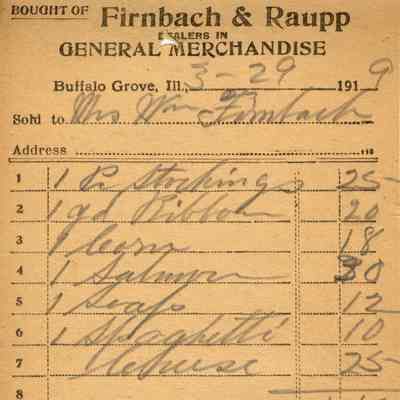 BOUGHT OF Firnbach & Raupp
DEALERS IN
GENERAL MERCHANDISE
Buffalo Grove, Ill., 3-29 1919
Sold to Mrs Wm Firnbach
Address
1 1 Pr Stockings 25
2 1 yd Ribbon 20
3 1 Corn 18
4 1 Salmon 30
5 1 Soap 12
6 1 Spaghetti 10
7 Cheese 25
8